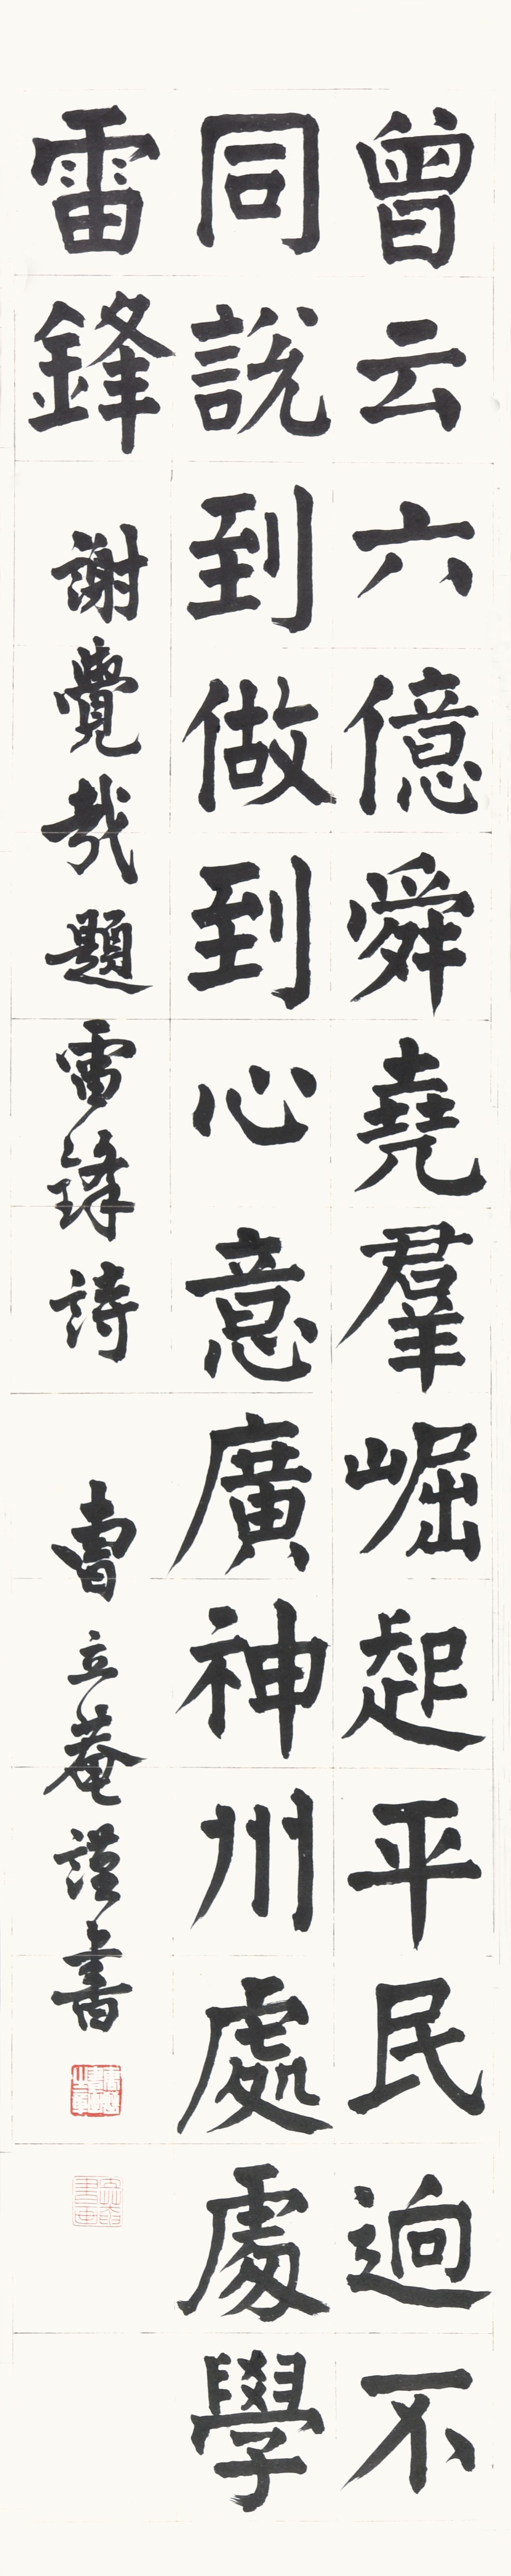 曾云六億舜堯羣崛起平民迥不
同說到做到心意廣神州處處學
雷鋒
謝覺哉題雷鋒詩
曹立菴謹書